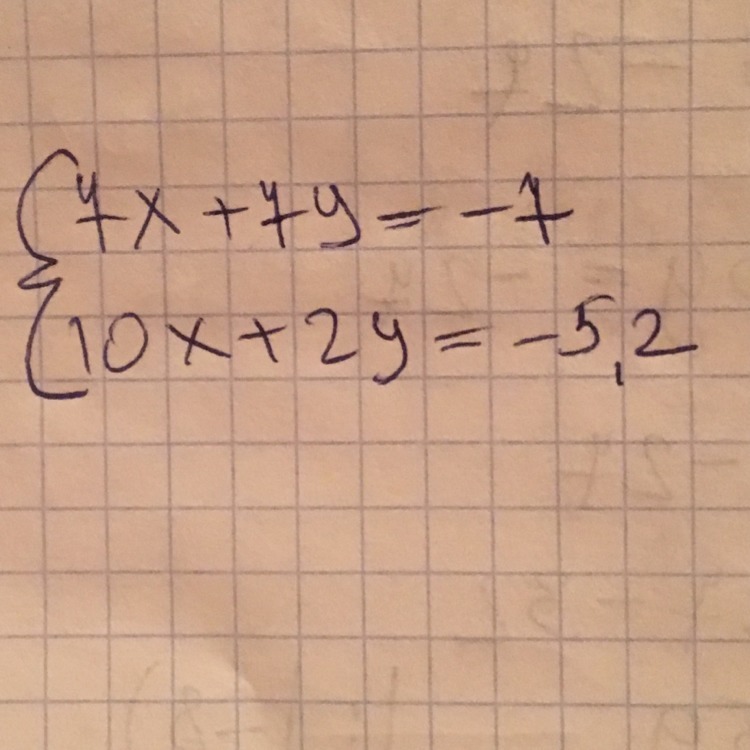 7x + 7y = -7
10x + 2y = -5,2